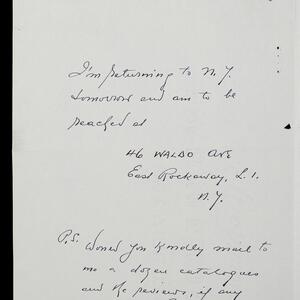 I'm returning to N.Y.
tomorrow and am to be
reached at
46 WALDO AVE
East Rockaway, L.I.
N.Y.
P.S. Would you kindly mail to
me a dozen catalogues
and the reviews, if any